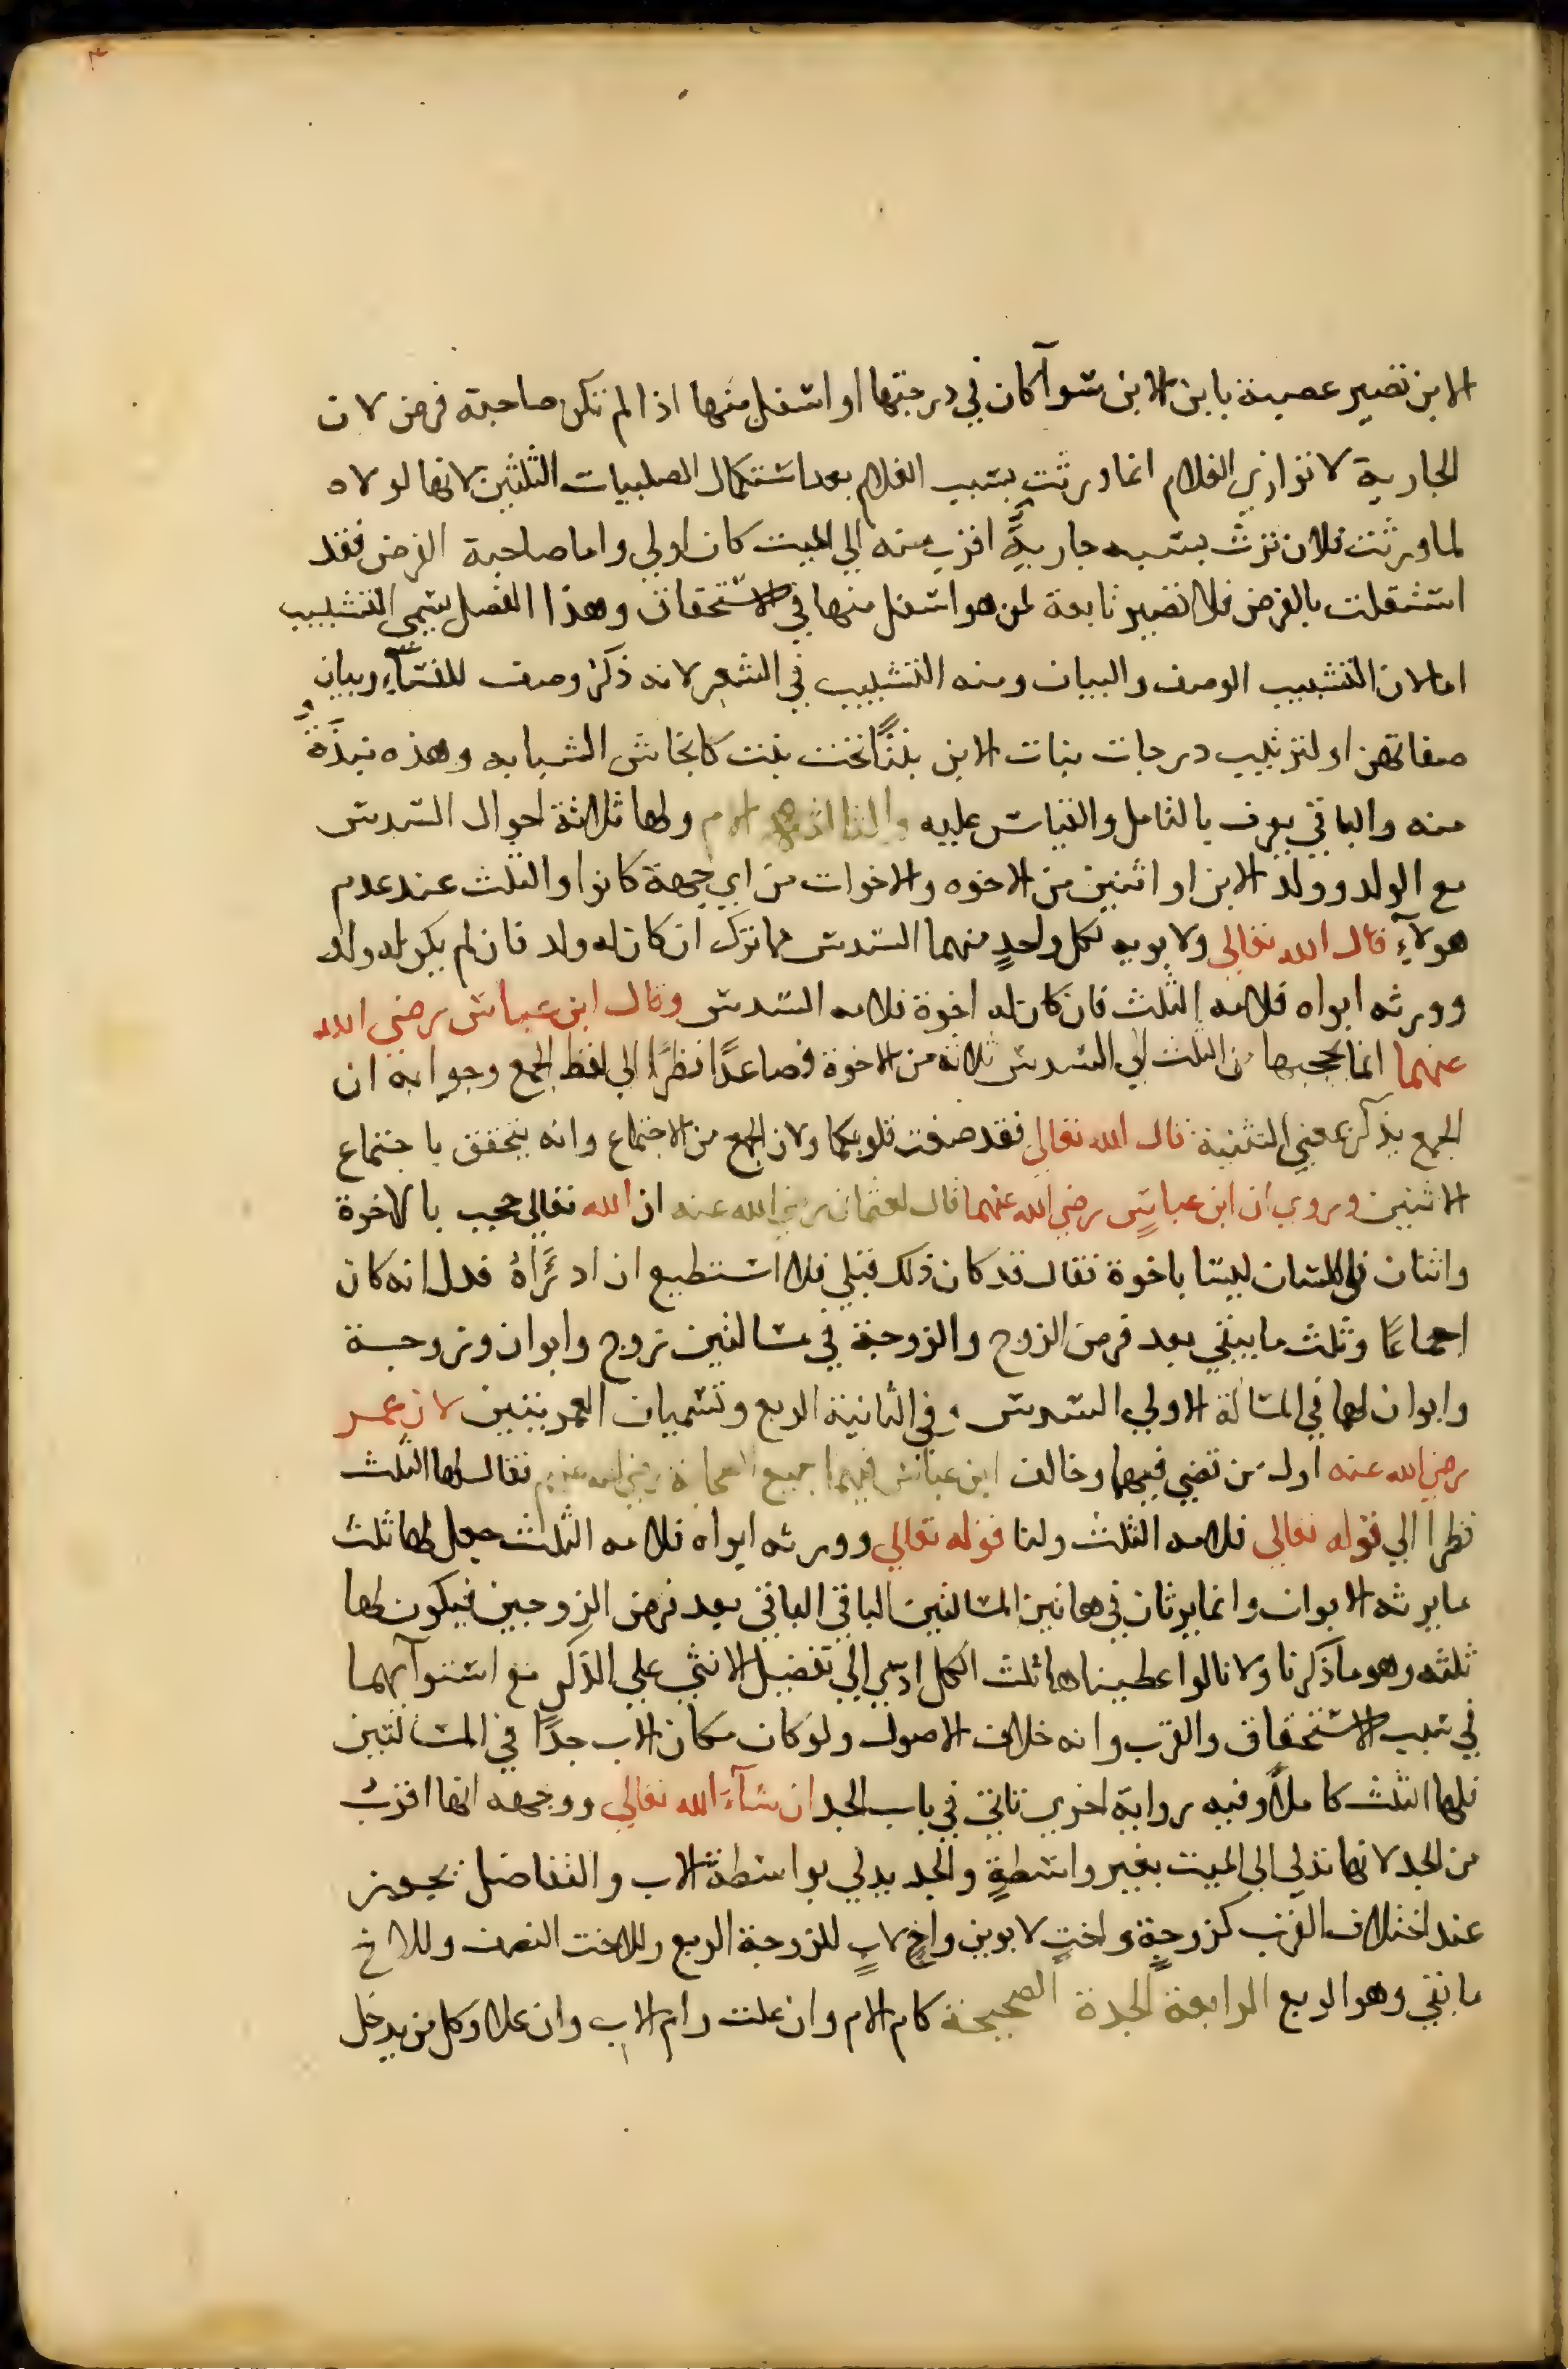 الابن تصير عصبة بابن الابن سوآكان في درجتها او اسفل منها اذا لم تكن صاحبة فرض لان
الجارية لا توازي الغلام انما ورثت بسبب الغلام بعد استكمال الصلبيات الثلثين لانها لولاه
لما ورثت فلان ترث بسببه جاريةٌ اقرب منه الي الميت كان اولي واما صاحبة الفرض فقد
استقلت بالفرض فلا تصير تابعة لمن هو اسفل منها في الاستحقاق وهذا الفصل يسمي التشبيب
اما لان التشبيب الوصف والبيان ومنه التشبيب في الشعر لانه ذكرُ وصف للنسآءِ وبيان
صفاتهن او لترتيب درجات بنات الابن بنتًا تحت بنت كابخاش الشبابه وهذه نبذَةٌ
منه والباقي يعرف بالتامل والقياس عليه والثالثه الام ولها ثلاثة احوال السدس
مع الولد وولد الابن او اثنين من الاخوه والاخوات من اي جهة كانوا والثلث عند عدم
هولآءِ قال الله تعالي ولابويه لكل واحدٍ منهما السدس مما ترك ان كان له ولد فان لم يكن له ولد
وورثه ابواه فلامه الثلث فان كان له اخوة فلامه السدس وقال ابن عباس رضي الله
عنهما انما يحجبها من الثلث الي السدس ثلاثة من الاخوة فصاعدًا نظرًا الي لفظ الجمع وجوابه ان
الجمع يذكر بمعني التثنية قال الله تعالي فقد صغت قلوبكما ولان الجمع من الاجتماع وانه يتحقق باجتماع
الاثنين وروي ان ابن عباسٍ رضي الله عنهما قال لعثمان رضي الله عنه ان الله تعالي حجب بالاخوة
واثنان في اللسان ليسا باخوة فقال قد كان ذلك قبلي فلا استطيع ان ادرَأهُ فدل انه كان
اجماعًا وثلث ما يبقي بعد فرض الزوج والزوجة في مسالتين زوج وابوان وزوجة
وابوان لها في المسالة الاولي السدس وفي الثانية الربع وتسميان العمريتين لان عمر
رضي الله عنه اول من قضي فيهما وخالف ابن عباس فيهما جميع الصحابة رضي الله عنهم فقال لها الثلث
نظرا الي قوله تعالي فلامه الثلث ولنا قوله تعالي وورثه ابواه فلامه الثلث جعل لها ثلث
ما يرثه الابوان وانما يرثان في هاتين المسالتين الباقي الباقي بعد فرض الزوجين فيكون لها
ثلثه وهو ما ذكرنا ولانا لو اعطيناها ثلث الكل ادي الي تفضيل الانثي علي الذكر مع استوآيهما
في سبب الاستحقاق والقرب وانه خلاف الاصول ولو كان مكان الاب جدًا في المسالتين
فلها الثلث كاملًا وفيه رواية اخري تاتي في باب الجد ان شآءَ الله تعالي ووجهه انها اقربُ
من الجد لانها تدلي الي الميت بغير واسطةٍ والجد يدلي بواسطة الاب والتفاضل يجوز
عند اختلاف القرب كزوجةٍ واختٍ لابوين واخٍ لابٍ للزوجة الربع وللاخت النصف وللاخ
ما بقي وهو الربع الرابعة الجدة الصحيحة كام الام وان علت وام الاب وان علا وكل من يدخل